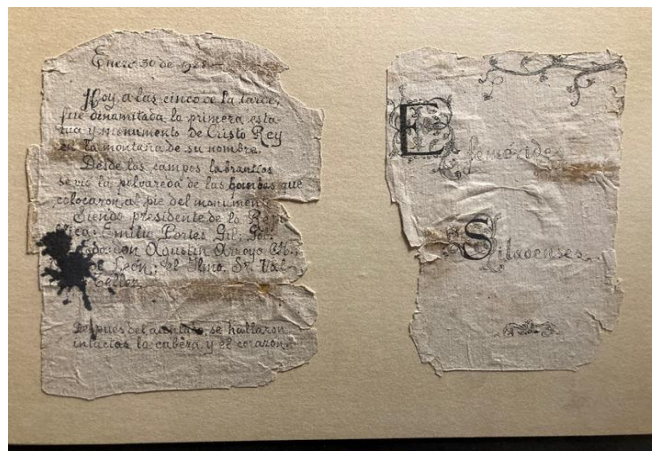 Enero 30 de 1928
Hoy, a las cinco de la tarde,
fue dinamitada, la primera esta-
tua y monumento de Cristo Rey
en la montaña de su nombre.
Desde los campos labrantíos
se vio la polvareda de las bombas que
colocaron, al pie del monumento
Siendo presidente de la Repú
blica: Emilio Portes Gil; Go
Agustín Arroyo Ch.
de León; el Ilmo. Sr. Val
Téllez.
Después del atentado, se hallaron
intactas la cabeza, y el corazón
Efemérides
Silaoenses.